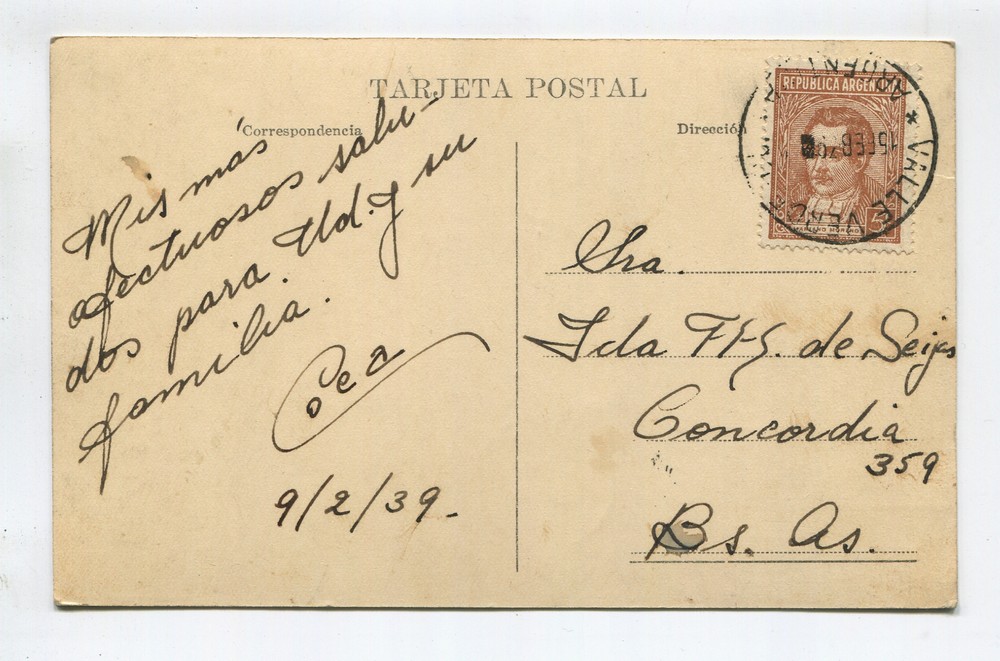 TARJETA POSTAL
Correspondencia
Mis más
afectuosos salu-
dos para Ud. y su
familia.
9/2/39.
Dirección
REPUBLICA ARGENTINA
MARIANO MORENO
15 FEB
VALLE
Sra.
Ida de Seijas
Concordia
359
Bs. As.